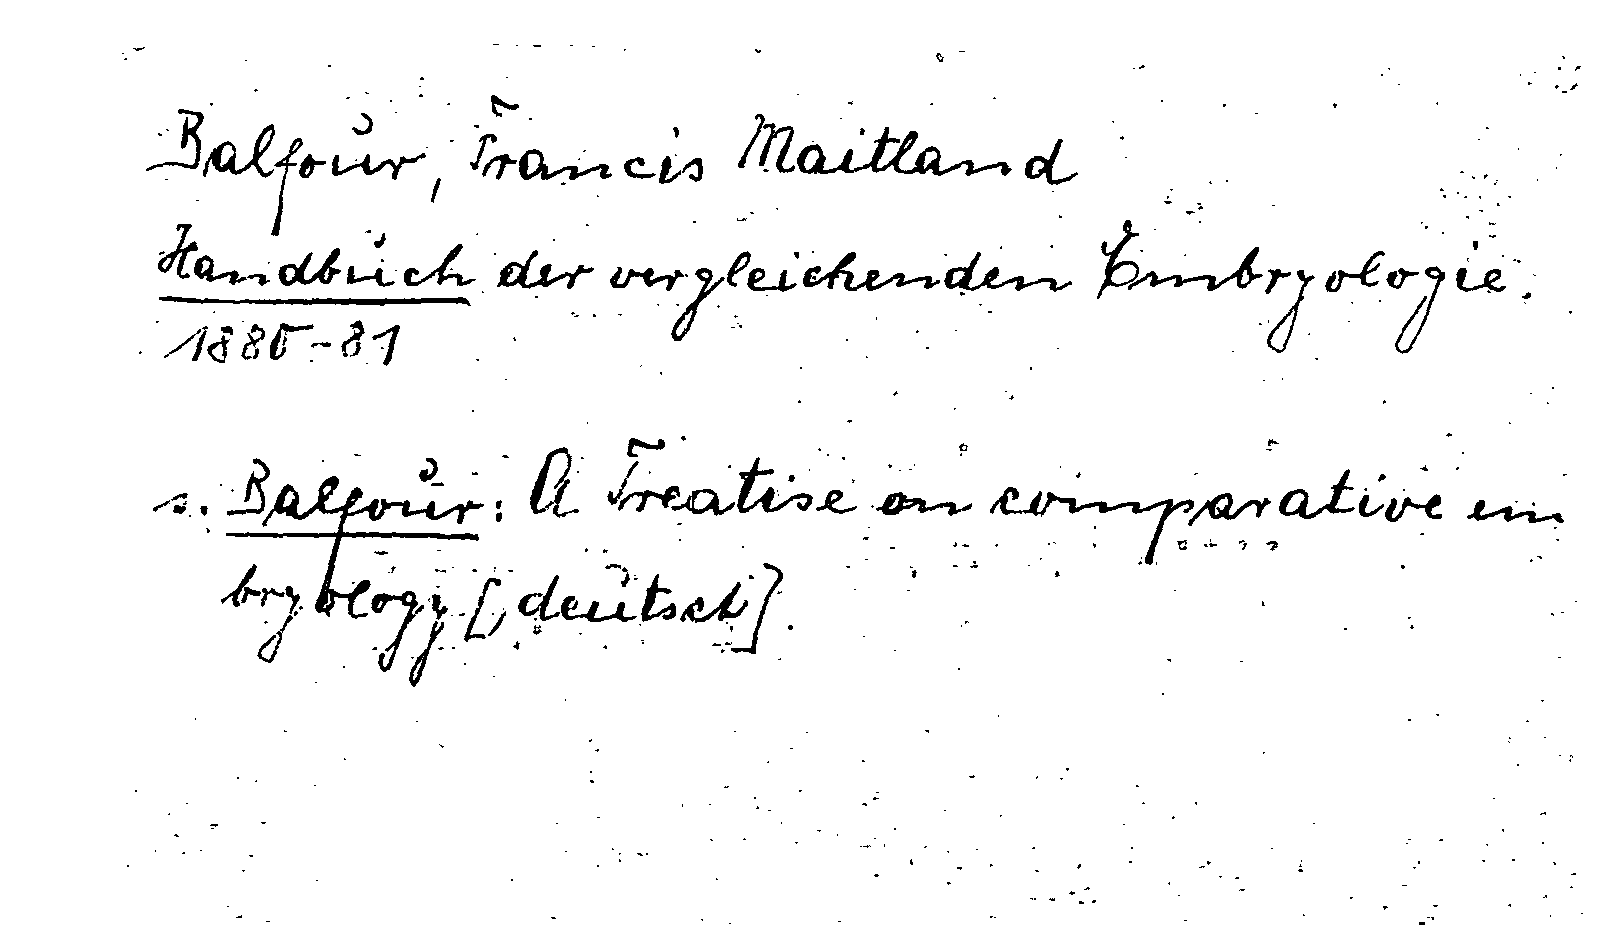 Balfour, Francis Maitland
Handbuch der vergleichenden Embryologie.
1880-81
s. Balfour: A Treatise on comparative em
bryology [, deutsch].